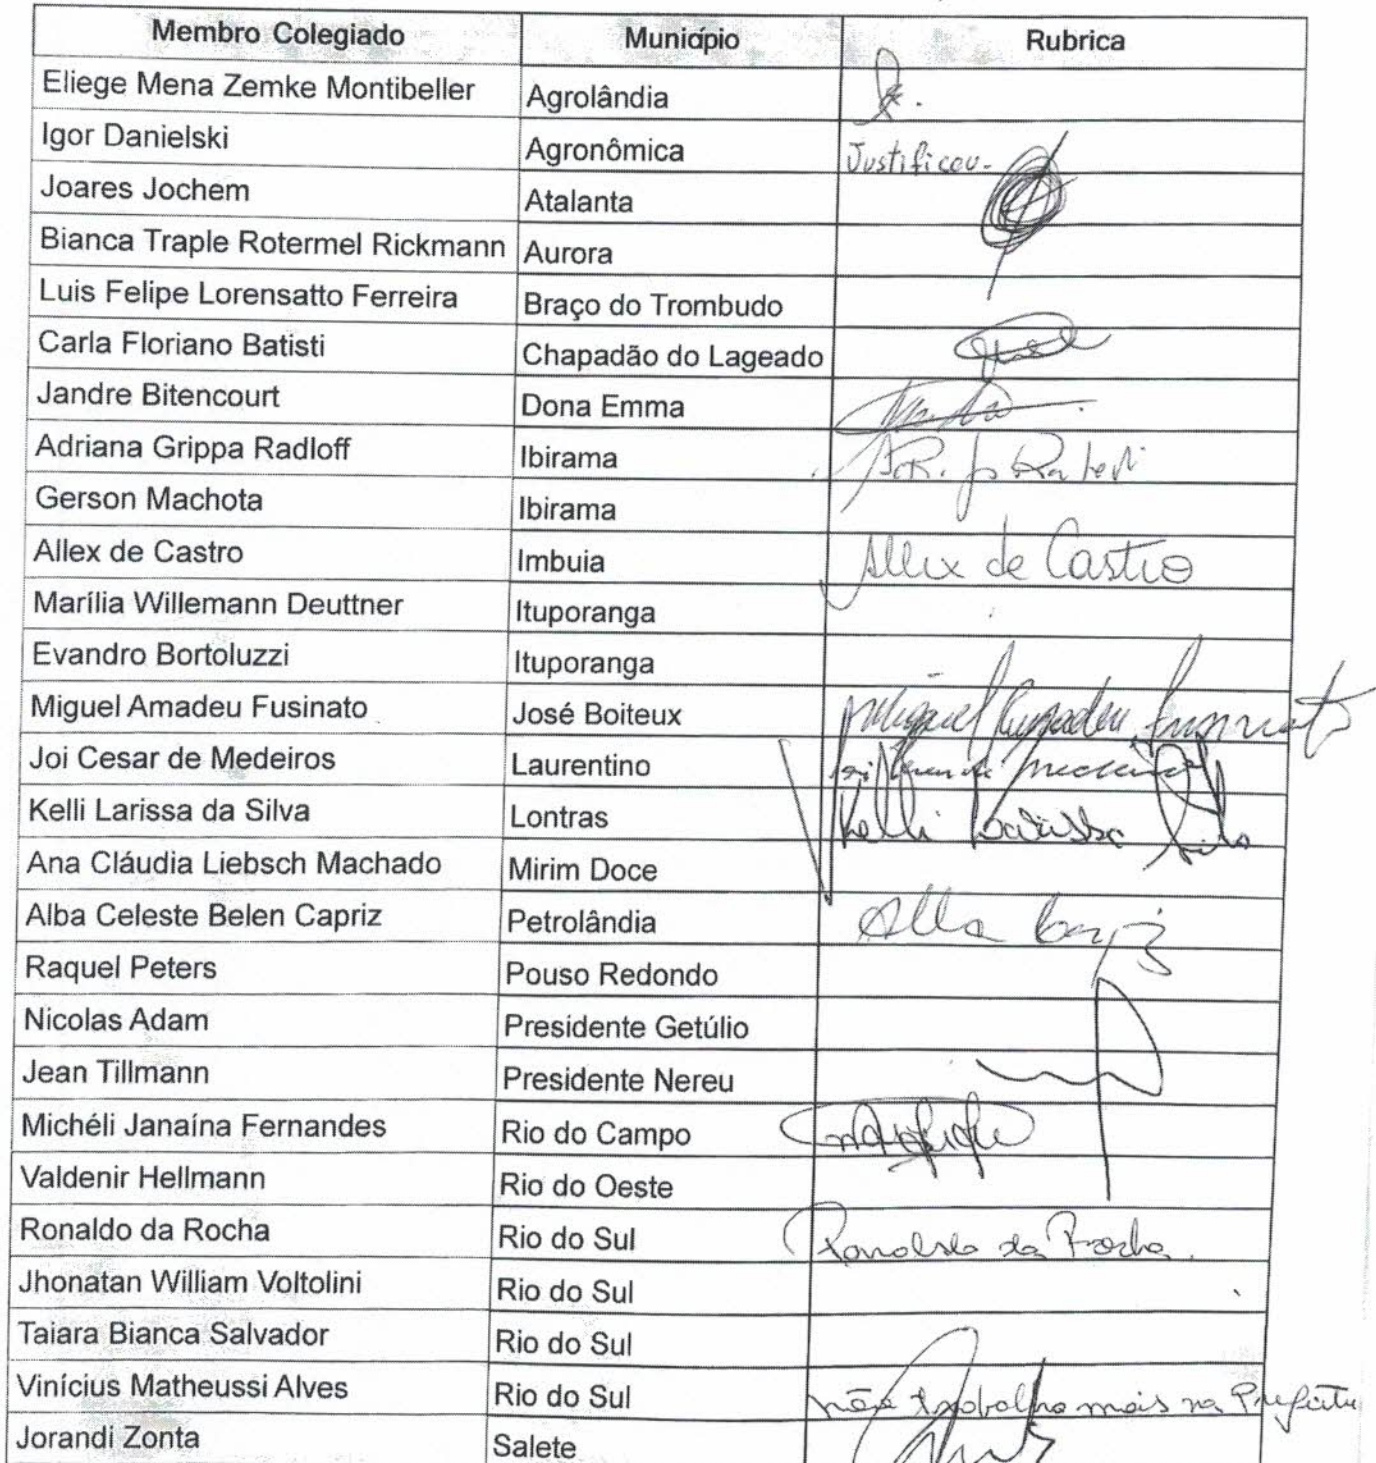 Membro Colegiado Município Rubrica
Eliege Mena Zemke Montibeller Agrolândia
Igor Danielski Agronômica Justificou.
Joares Jochem Atalanta
Bianca Traple Rotermel Rickmann Aurora
Luis Felipe Lorensatto Ferreira Braço do Trombudo
Carla Floriano Batisti Chapadão do Lageado
Jandre Bitencourt Dona Emma
Adriana Grippa Radloff Ibirama
Gerson Machota Ibirama
Allex de Castro Imbuia Allex de Castro
Marília Willemann Deuttner Ituporanga
Evandro Bortoluzzi Ituporanga
Miguel Amadeu Fusinato José Boiteux Miguel Amadeu Fusinato
Joi Cesar de Medeiros Laurentino
Kelli Larissa da Silva Lontras Kelli Larissa Silva
Ana Cláudia Liebsch Machado Mirim Doce
Alba Celeste Belen Capriz Petrolândia Alba Capriz
Raquel Peters Pouso Redondo
Nicolas Adam Presidente Getúlio
Jean Tillmann Presidente Nereu
Michéli Janaína Fernandes Rio do Campo
Valdenir Hellmann Rio do Oeste
Ronaldo da Rocha Rio do Sul Ronaldo da Rocha
Jhonatan William Voltolini Rio do Sul
Taiara Bianca Salvador Rio do Sul
Vinícius Matheussi Alves Rio do Sul não trabalha mais na Prefeitu
Jorandi Zonta Salete